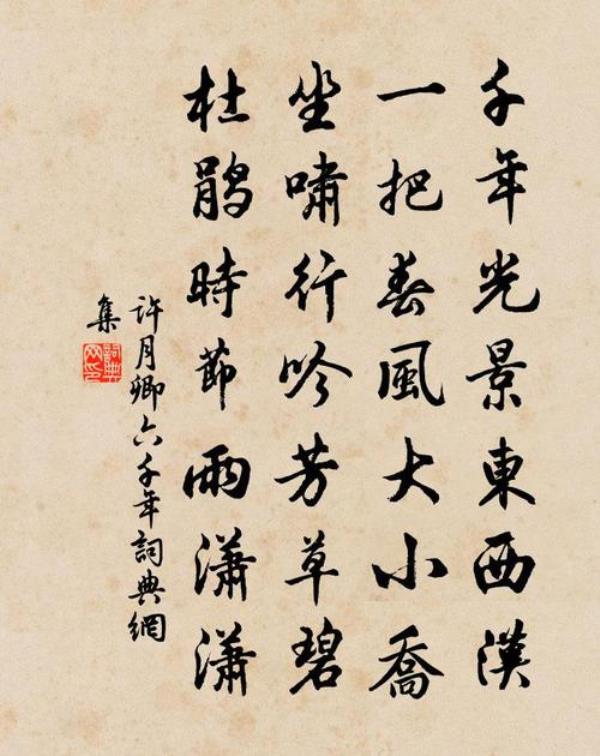 千年光景東西漢
一把春風大小喬
坐嘯行吟芳草碧
杜鵑時節雨瀟瀟
許月卿六千年詞典網
集
詞典網印